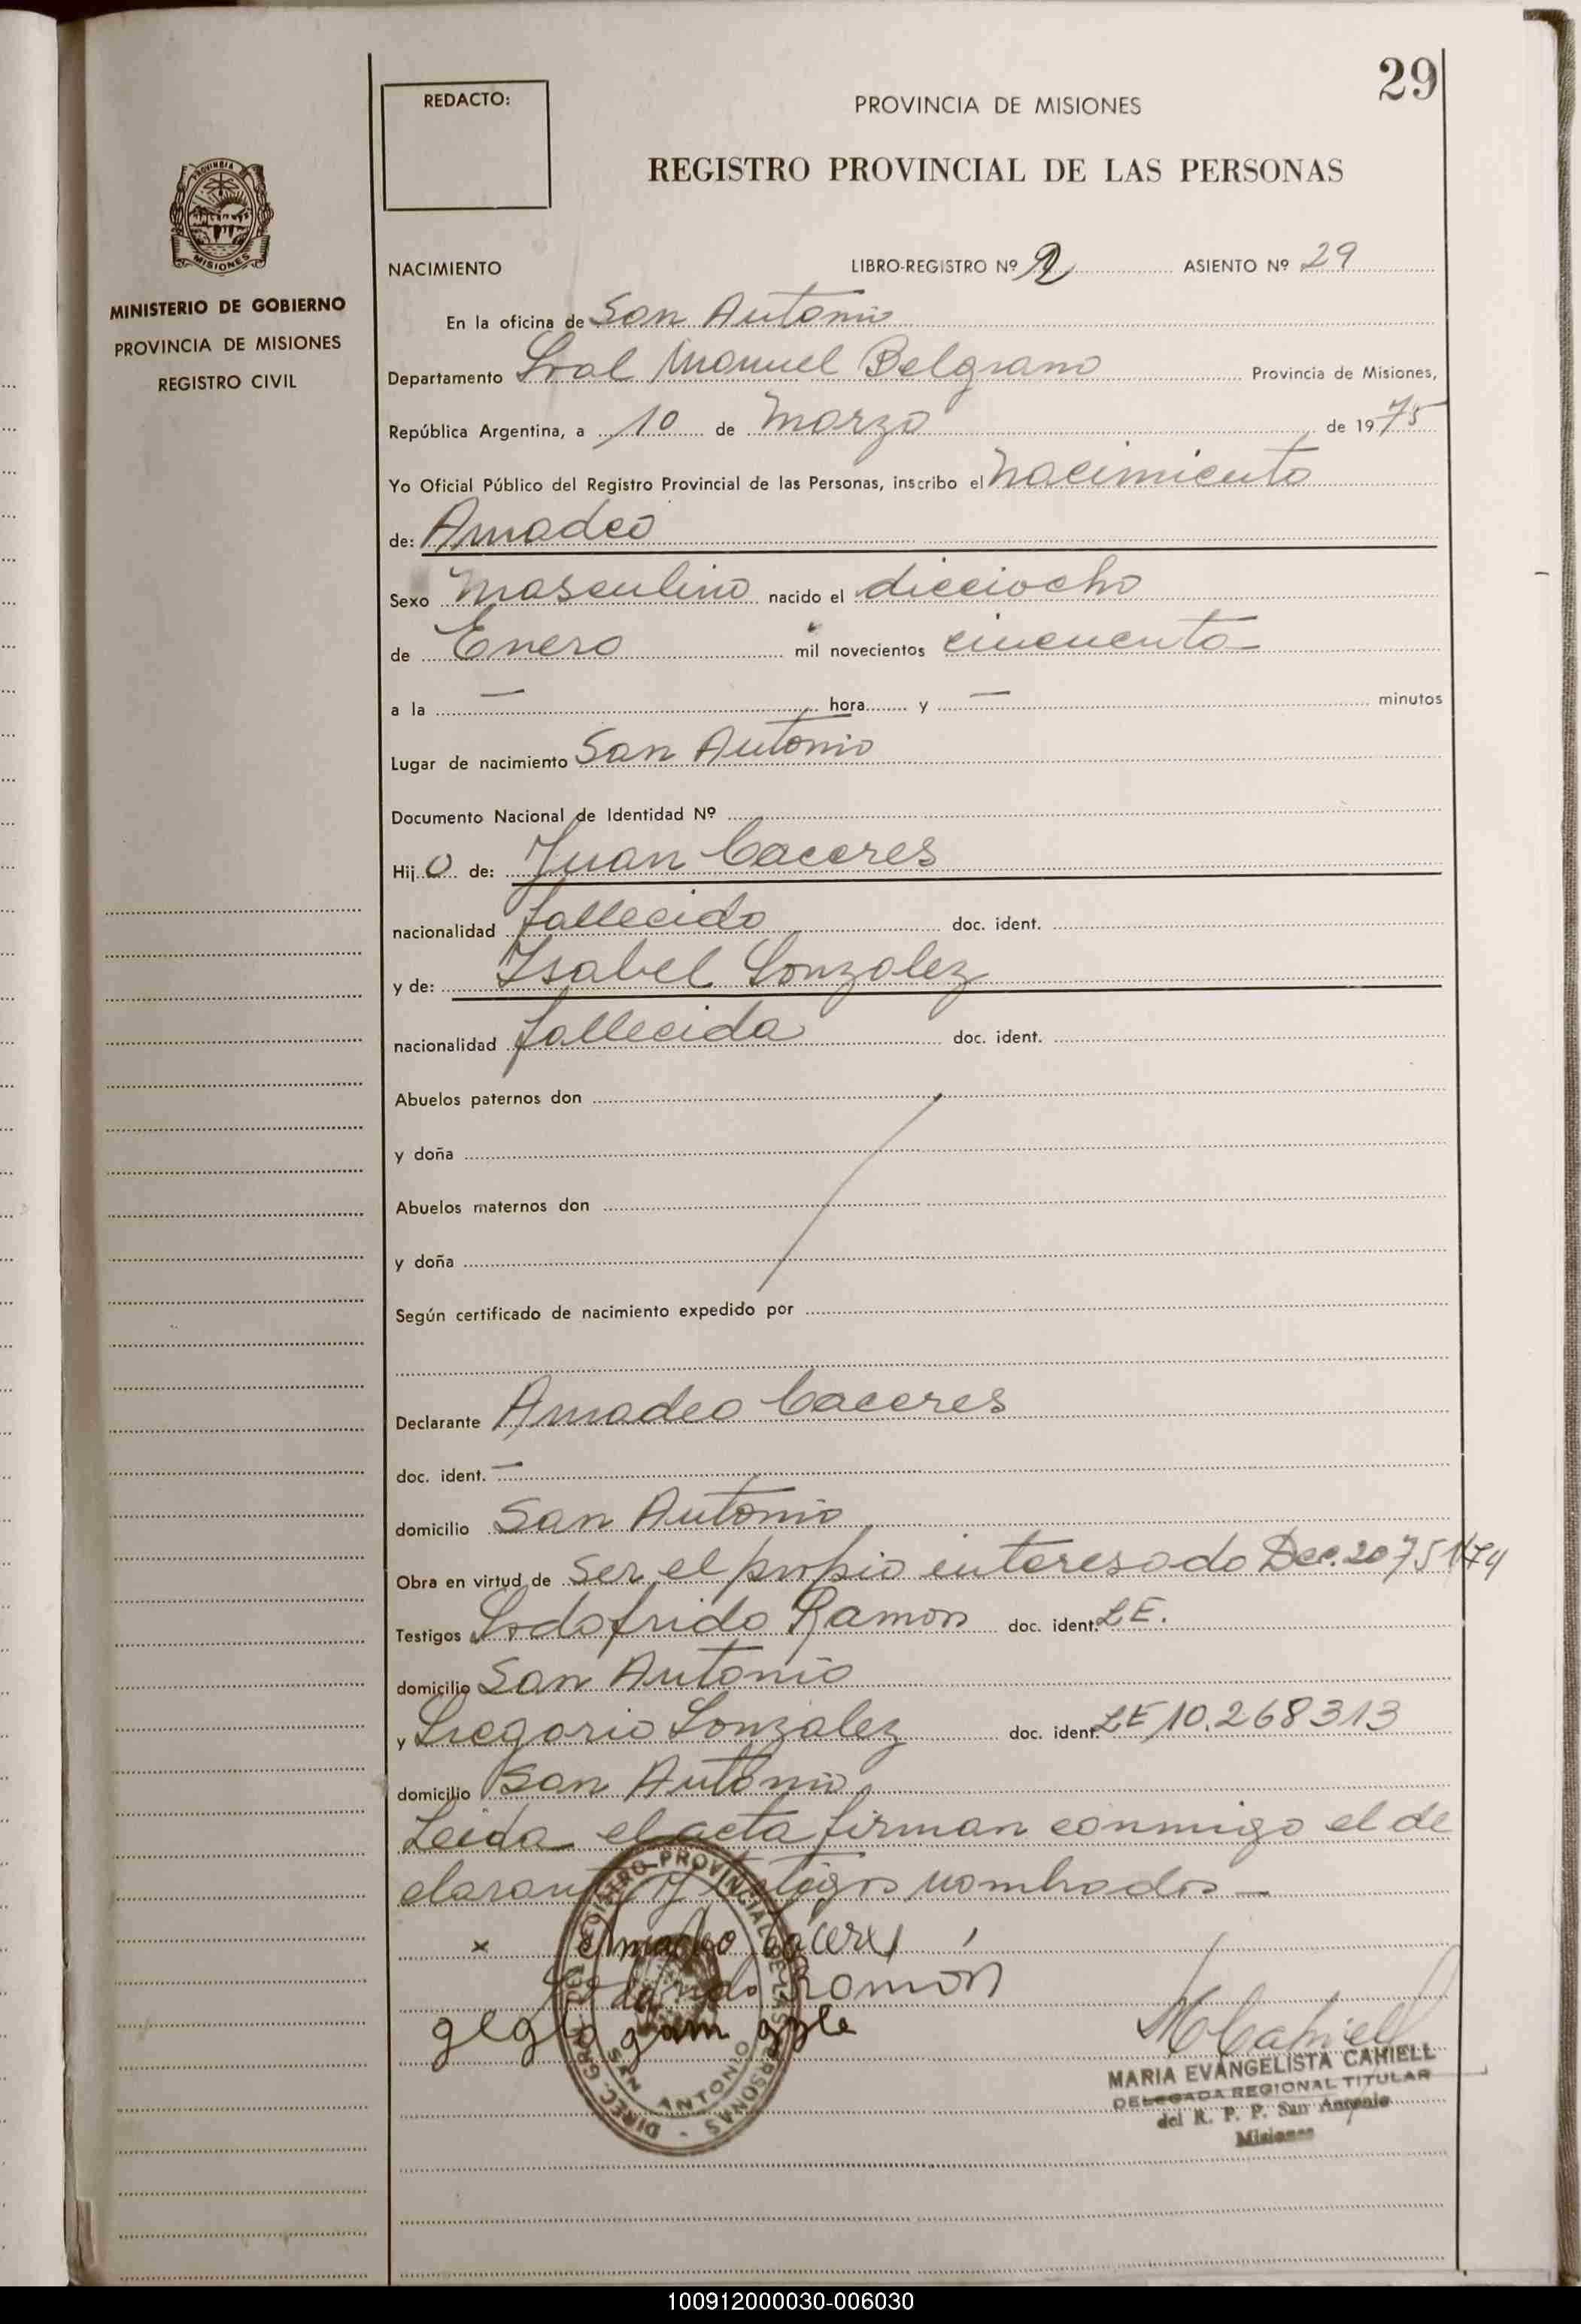 29
REDACTO:
PROVINCIA DE MISIONES
REGISTRO PROVINCIAL DE LAS PERSONAS
PROVINCIA
MISIONES
MINISTERIO DE GOBIERNO
PROVINCIA DE MISIONES
REGISTRO CIVIL
NACIMIENTO LIBRO-REGISTRO Nº 2 ASIENTO Nº 29
En la oficina de San Antonio
Departamento Gral Manuel Belgrano Provincia de Misiones,
República Argentina, a 10 de Marzo de 1975
Yo Oficial Público del Registro Provincial de las Personas, inscribo el nacimiento
de: Amadeo
Sexo masculino nacido el dieciocho
de Enero mil novecientos cincuenta
a la — hora y — minutos
Lugar de nacimiento San Antonio
Documento Nacional de Identidad Nº
Hijo de: Juan Caceres
nacionalidad fallecido doc. ident.
y de: Isabel Gonzalez
nacionalidad fallecida doc. ident.
Abuelos paternos don
y doña
Abuelos maternos don
y doña
Según certificado de nacimiento expedido por
Declarante Amadeo Caceres
doc. ident. —
domicilio San Antonio
Obra en virtud de ser el propio interesado Dec. 2075 1/74
Testigos Godofrido Ramon doc. ident. LE.
domicilio San Antonio
y Gregorio Gonzalez doc. ident. LE 10.268313
domicilio San Antonio
Leida el acta firman conmigo el de
clarante y testigos nombrados —
x Amadeo Caceres
Ramon
MARIA EVANGELISTA CAHIELL
DELEGADA REGIONAL TITULAR
del R. P. P. San Antonio
Misiones
DIREC. GRAL. DEL REGISTRO PROVINCIAL DE LAS PERSONAS -
SAN ANTONIO
100912000030-006030